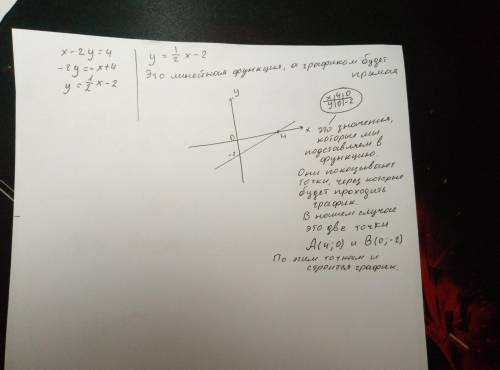 x - 2y = 4
-2y = -x + 4
y = 1/2 x - 2
y = 1/2 x - 2
Это линейная функция, а графиком будет
прямая
y
x
0
4
-2
x|4|0
y|0|-2
это значения,
которые мы
подставляем в
функцию
Они показывают
точки, через которые
будет проходить
график.
В нашем случае
это две точки
A(4;0) и B(0;-2)
По этим точкам и
строится график.